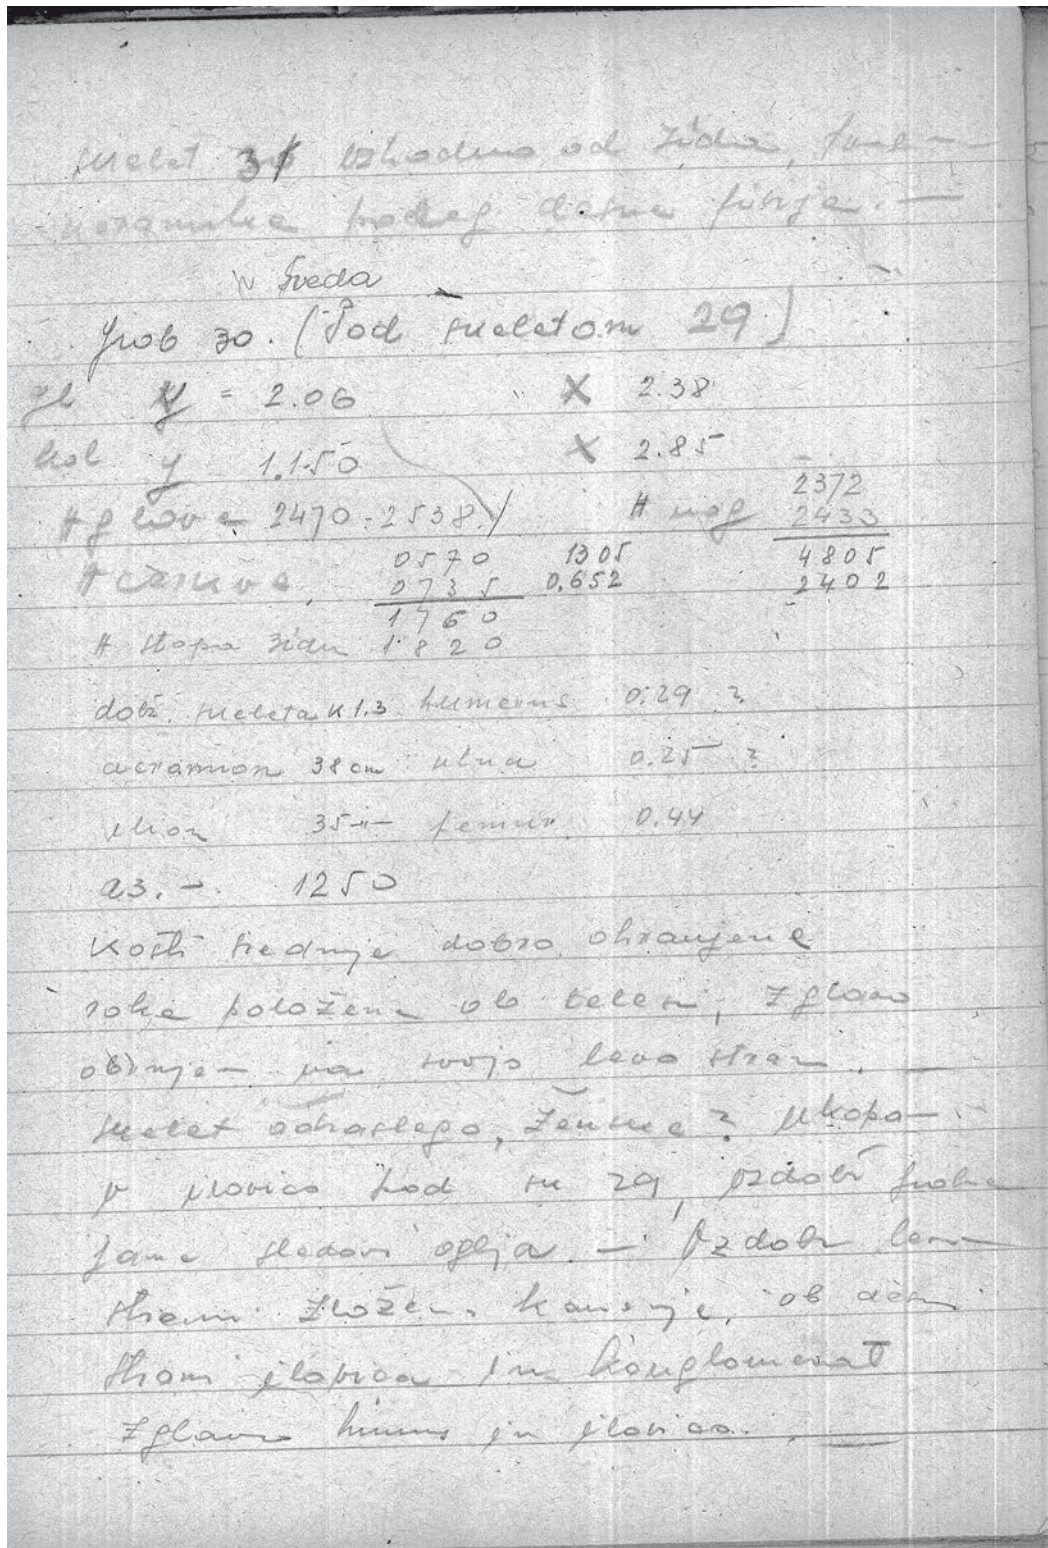 skelet 31 vzhodno od zidu,
podleg desne
Sveda
Grob 30. (Pod skeletom 29)
gl y = 2.06 X 2.38
kol y 1.150 X 2.85
2372
# glave 2470 - 2538 # nog 2433
0570 1305 4805
# 0735 0.652 2402
1760
# stopa zidu 1820
dolž. skeleta K 1.3 humerus 0.29 ?
acromion 38 cm ulna 0.25 ?
35 -"- femur 0.44
az. - 1250
Kosti srednje dobro ohranjene
roke položene ob telesu, z glavo
obrnjen na svojo levo stran. —
skelet odraslega, ženske? vkopan
v ilovico pod sk 29, vzdolž grobne
jame sledovi oglja. — Vzdolž leve
strani zloženo kamenje, ob desni
strani ilovica in konglomerat
z glavo humus in ilovica.